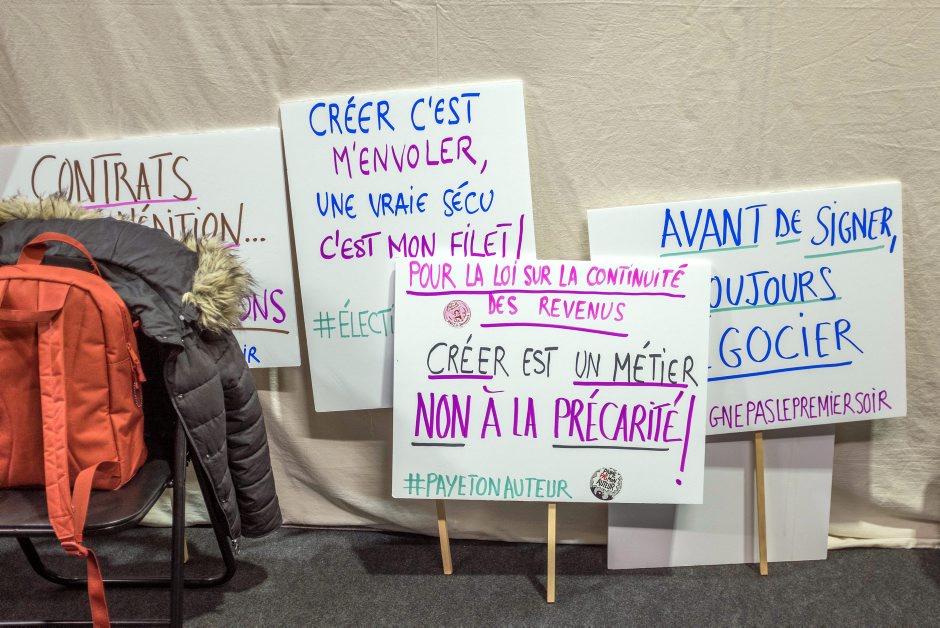 CONTRATS
CRÉER C'EST
M'ENVOLER,
UNE VRAIE SÉCU
C'EST MON FILET!
POUR LA LOI SUR LA CONTINUITÉ
DES REVENUS
CRÉER EST UN MÉTIER
NON À LA PRÉCARITÉ!
#PAYETONAUTEUR
AVANT DE SIGNER,
OUJOURS
GOCIER
GNEPASLEPREMIERSOIR